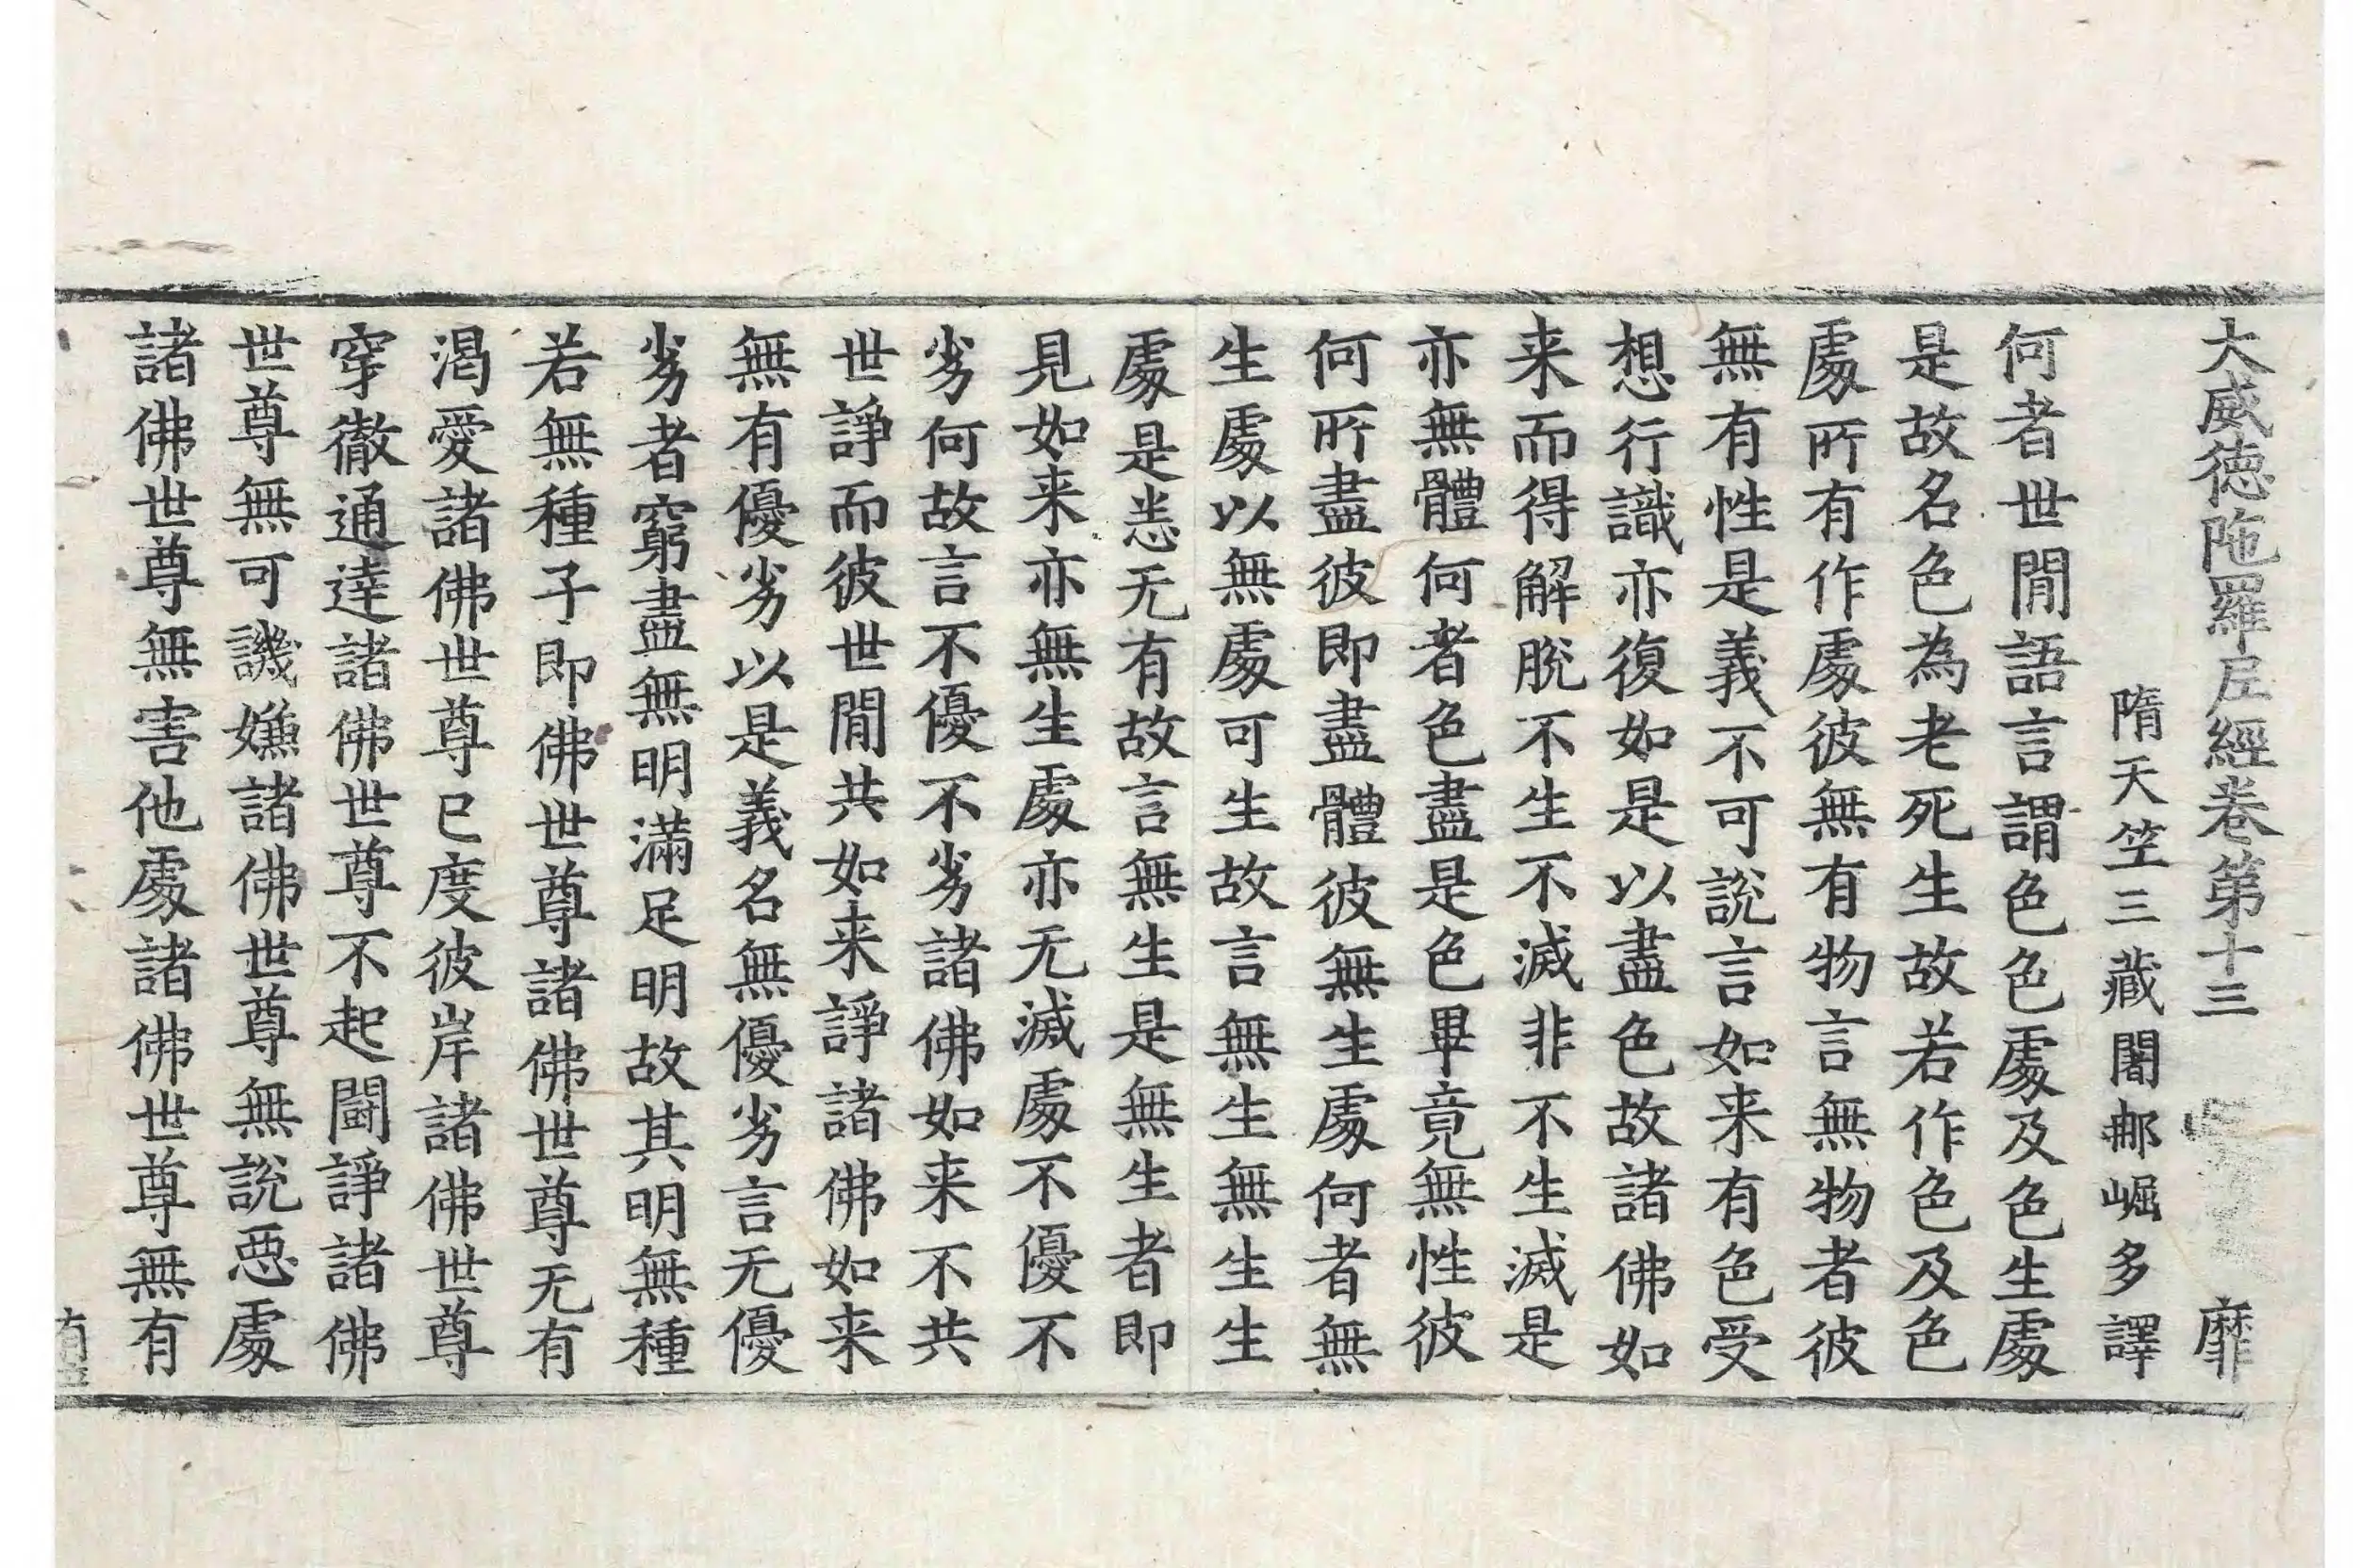 大威徳陁羅尼經卷第十三 靡
隋天笁三藏闍那崛多譯
何者世間語言謂色色處及色生處
是故名色為老死生故若作色及色
處所有作處彼無有物言無物者彼
無有性是義不可說言如来有色受
想行識亦復如是以盡色故諸佛如
来而得解脫不生不滅非不生滅是
亦無體何者色盡是色畢竟無性彼
何所盡彼即盡體彼無生處何者無
生處以無處可生故言無生無生生
處是恙无有故言無生是無生者即
見如来亦無生處亦无滅處不優不
劣何故言不優不劣諸佛如来不共
世諍而彼世間共如来諍諸佛如来
無有優劣以是義名無優劣言无優
劣者窮盡無明滿足明故其明無種
若無種子即佛世尊諸佛世尊无有
渴愛諸佛世尊已度彼岸諸佛世尊
穿徹通達諸佛世尊不起鬪諍諸佛
世尊無可譏嫌諸佛世尊無說惡處
諸佛世尊無害他處諸佛世尊無有